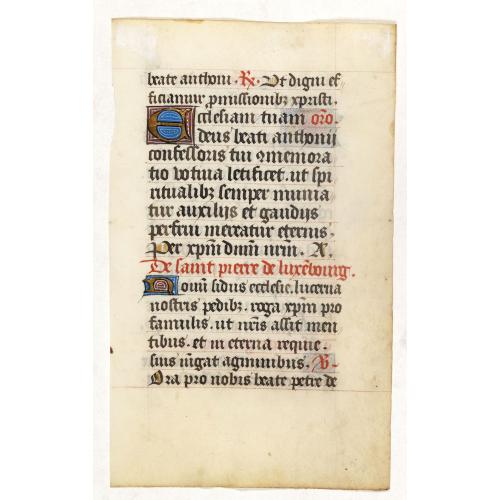 beate anthoni. ℞. Ut digni ef
ficiamur p̱missionibꝫ xp̄risti.
Ecclesiam tuam or̄o.
deus beati anthonii
confessoris tui ꝯmemora
tio votiua letificet. ut spi
ritualibꝫ semper munia
tur auxilijs et gaudijs
perfrui mereatur eternis.
Per xp̄m dn̄um nr̄m. A.
De saint pierre de luxēbourg.
Nouū sidus ecclesie. lucerna
nostris pedibꝫ. roga xp̄m pro
famulis. ut nr̄is assit men
tibus. et in eterna requie.
suis iūgat agminibus. ℣.
Ora pro nobis beate petre de